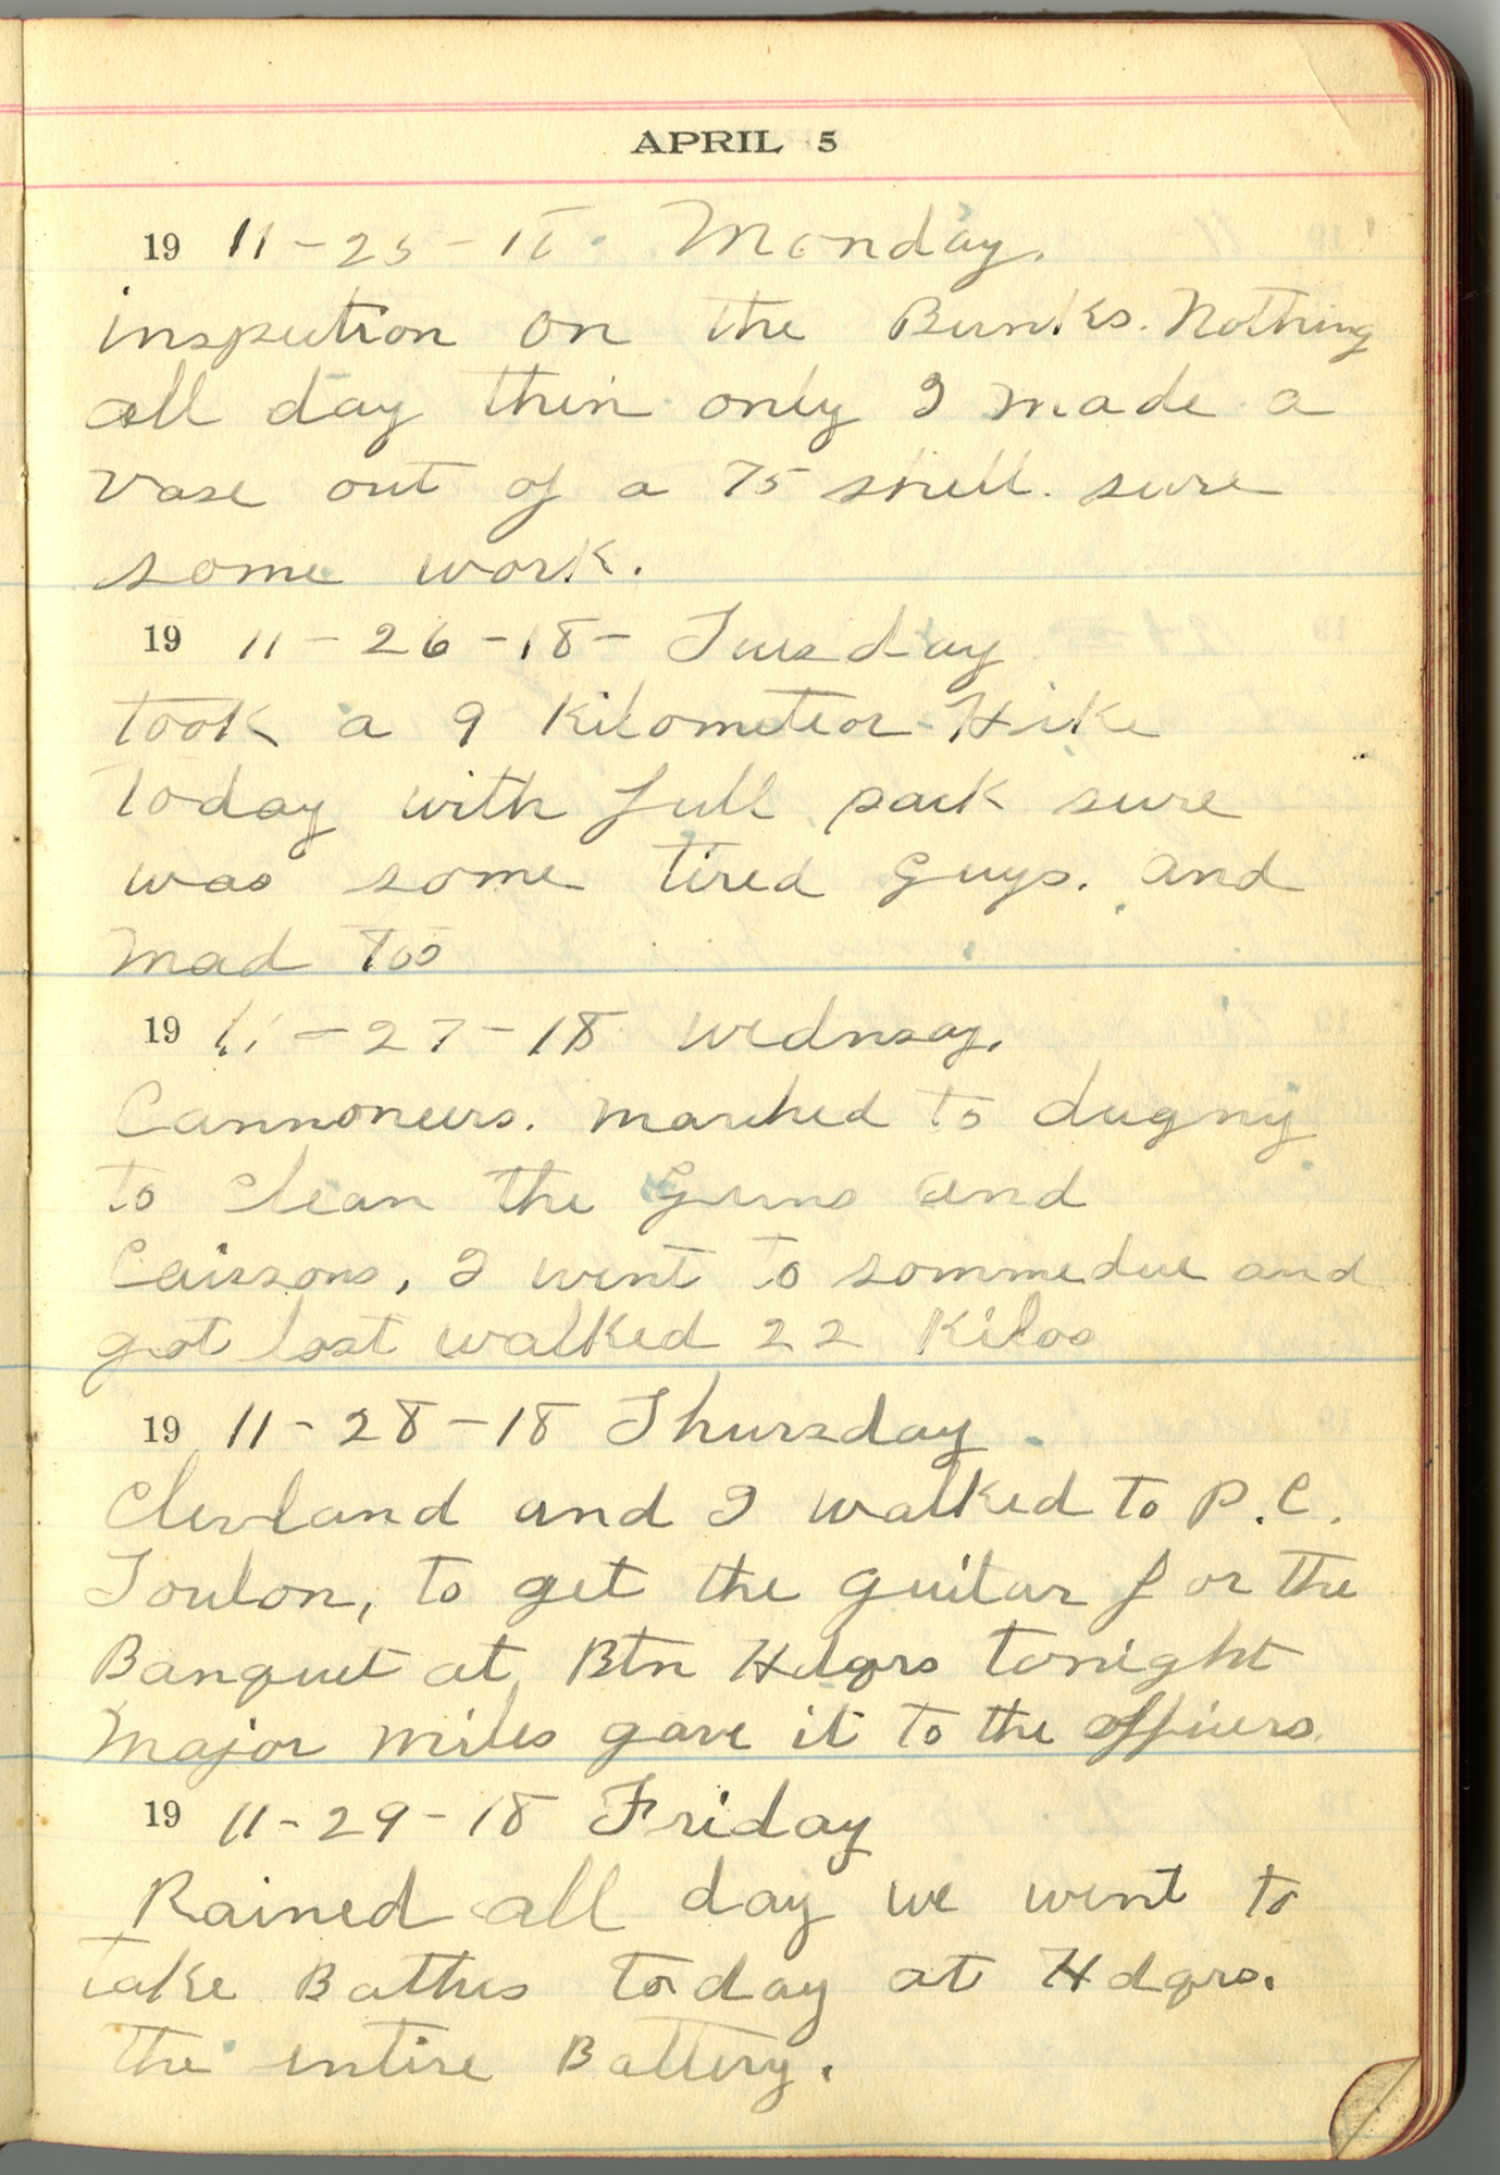 APRIL 5
19 11-25-18 Monday.
inspection on the Bunks. Nothing
all day then only I made a
vase out of a 75 shell. sure
some work.
19 11-26-18- Tuesday
took a 9 Kilometeor Hike
today with full pack sure
was some tired guys. and
mad too
19 11-27-18 wednsay.
Cannoneers. marched to dugny
to clean the Guns and
Caissons, I went to sommedue and
got lost walked 22 Kilos
19 11-28-18 Thursday
Clevland and I walked to P.C.
Toulon, to get the guitar for the
Banquet at Btn Hdqrs tonight
Major miles gave it to the officers.
19 11-29-18 Friday
Rained all day we went to
take Bathes today at Hdqrs.
the entire Battery.